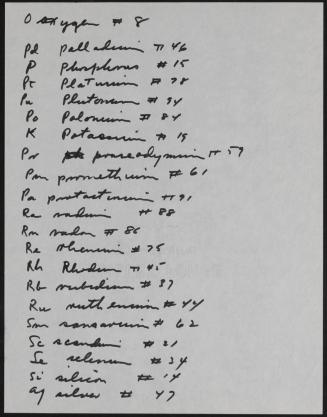 O oxygen # 8
Pd palladium # 46
P phosphorus # 15
Pt Platinum # 78
Pu Plutonium # 94
Po Polonium # 84
K Potassium # 19
Pr praseodymium # 59
Pm promethium # 61
Pa protactinium # 91
Ra radium # 88
Rn radon # 86
Re rhenium # 75
Rh Rhodium # 45
Rb rubidium # 37
Ru ruthenium # 44
Sm samarium # 62
Sc scandium # 21
Se selenium # 34
Si silicon # 14
Ag silver # 47